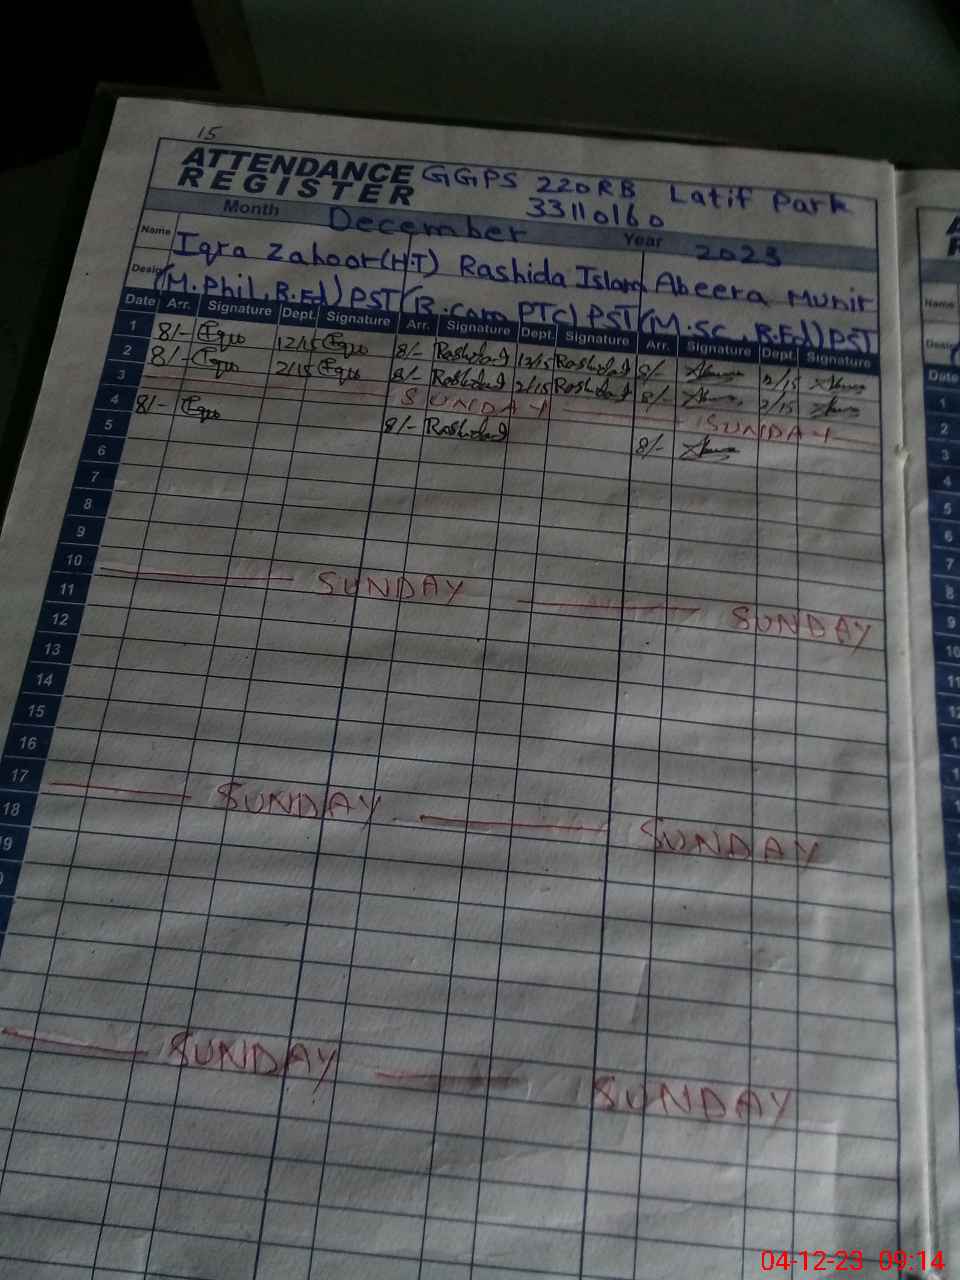 15
ATTENDANCE REGISTER GGPS 220RB Latif Park
33110160
Month December Year 2023
Name Iqra Zahoor(HT) Rashida Islam Abeera Munir
Design (M.Phil, B.Ed) PST (B.com PTC) PST (M.SC, B.Ed) PST
Date Arr. Signature Dept. Signature Arr. Signature Dept. Signature Arr. Signature Dept. Signature
1 8/- 12/15 8/- Rashida 12/15 Rashida 8/ 12/15
2 8/- 2/15 8/- Rashida 2/15 Rashida 8/- 2/15
3 SUNDAY SUNDAY
4 8/- 8/- Rashida 8/-
5
6
7
8
9
10 SUNDAY SUNDAY
11
12
13
14
15
16
17 SUNDAY SUNDAY
18
19
SUNDAY SUNDAY
Name
Date
1
2
3
4
5
6
7
8
9
10
11
04-12-23 09:14